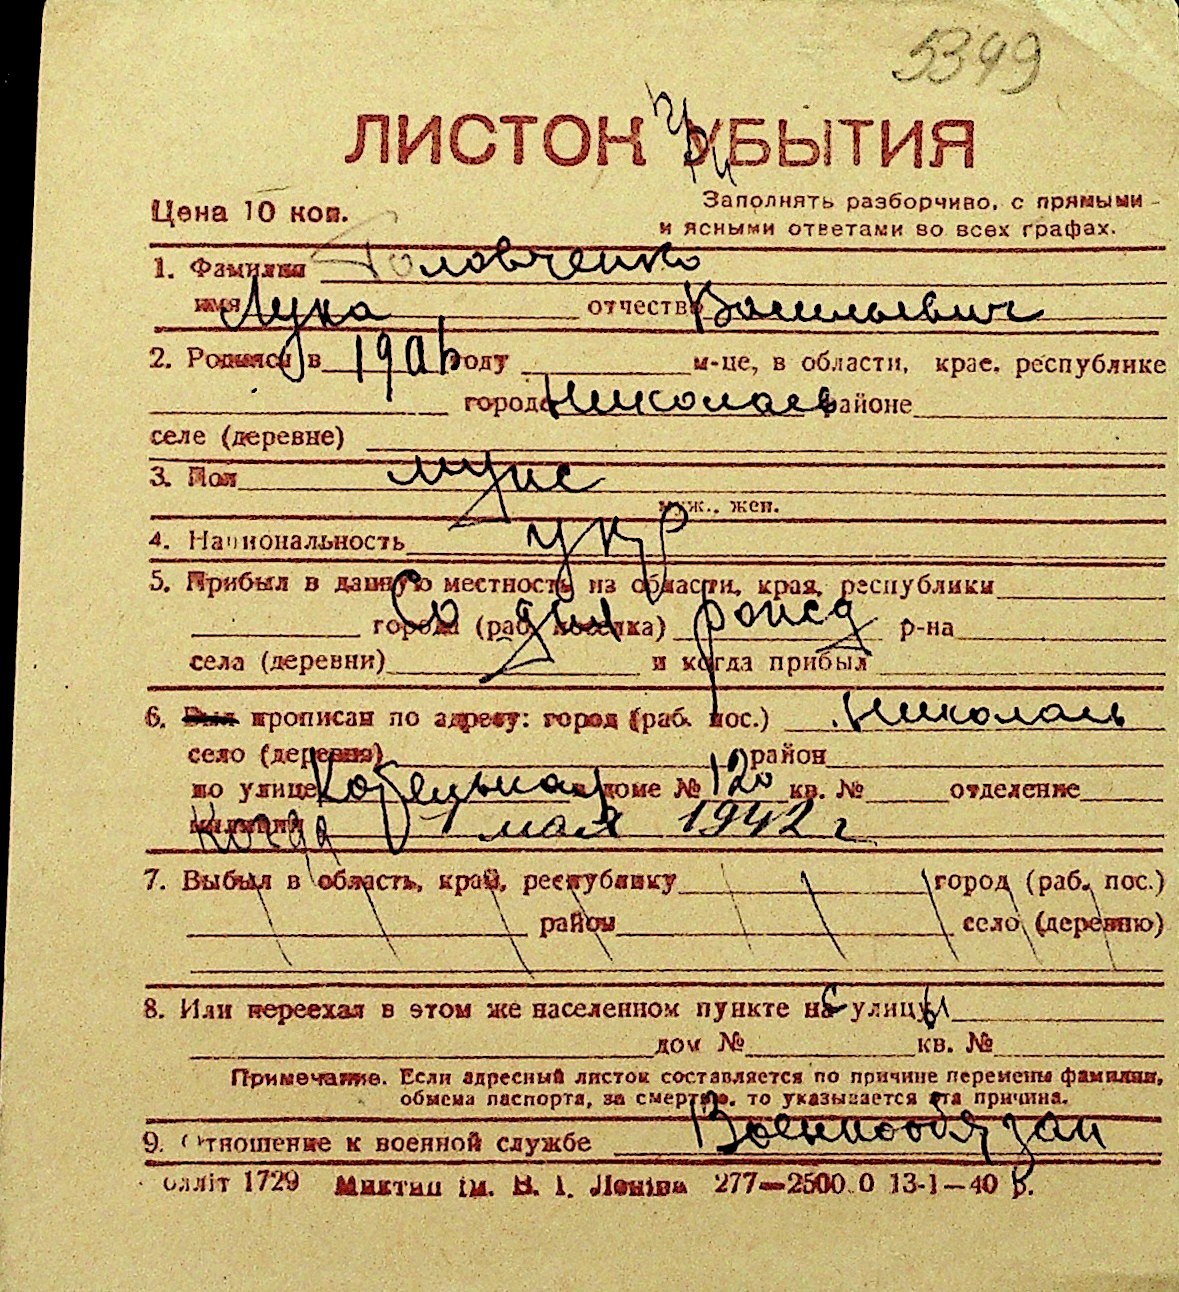 5349
ЛИСТОК УБЫТИЯ
при
Цена 10 коп.
Заполнять разборчиво, с прямыми
и ясными ответами во всех графах.
1. Фамилия Головченко
имя Лука отчество Васильевич
2. Родился в 1906 году м-це, в области, крае, республике
городе Николаев районе
селе (деревне)
3. Пол муж
муж., жен.
4. Национальность укр
5. Прибыл в данную местность из области, края, республики
Со дня рожд
города (раб. поселка) р-на
села (деревни) и когда прибыл
6. Был прописан по адресу: город (раб. пос.) Николаев
село (деревня) район
по улице в доме № 120 кв. № отделение
милиции Когда 1 мая 1942 г
7. Выбыл в область, край, республику город (раб. пос.)
район село (деревню)
8. Или переехал в этом же населенном пункте на с улицу ы
дом № кв. №
Примечание. Если адресный листок составляется по причине перемены фамилии,
обмена паспорта, за смертью, то указывается эта причина.
9. Отношение к военной службе Военнообязан
олліт 1729 ім. В. І. Леніна 277—2500.0 13-1—40 р.